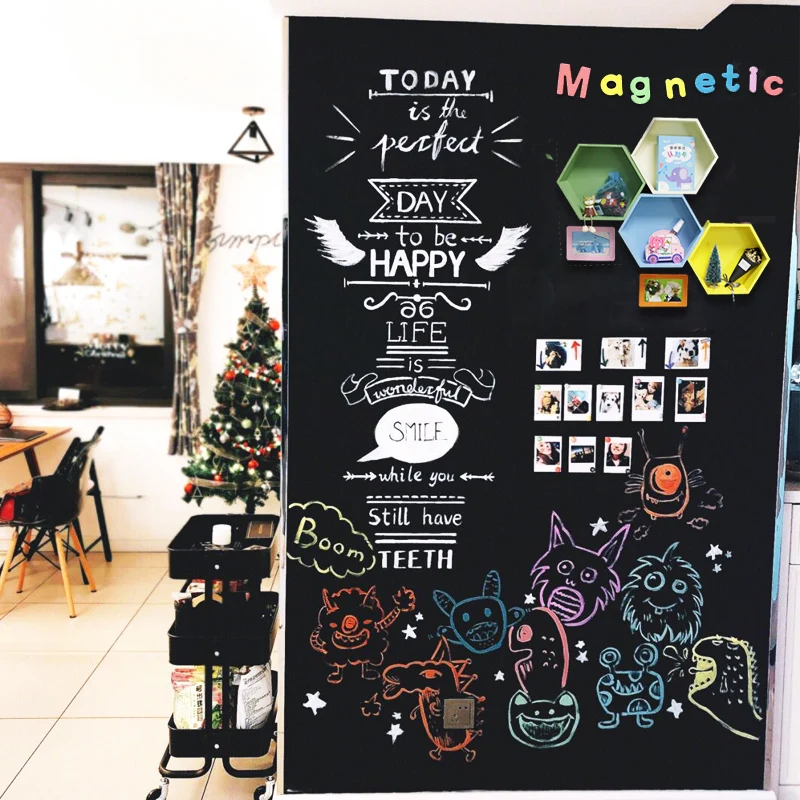 TODAY
is the
perfect
DAY
to be
HAPPY
LIFE
is
wonderful
SMILE
while you
Still have
TEETH
Boom
Magnetic